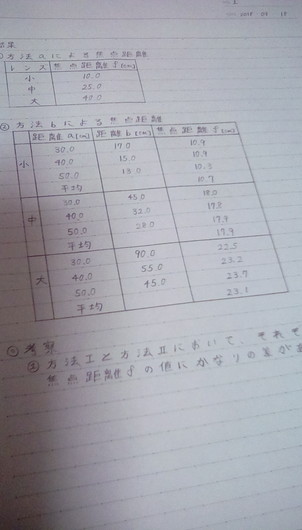 結果
①方法aによる焦点距離
レンズ 焦点距離 f [cm]
小 10.0
中 25.0
大 40.0
② 方法bによる焦点距離
距離 a [cm] 距離 b [cm] 焦点距離 f [cm]
小 30.0 17.0 10.9
40.0 15.0 10.9
50.0 13.0 10.3
平均 10.7
中 30.0 45.0 18.0
40.0 32.0
50.0 28.0 17.9
平均 17.9
大 30.0 90.0 22.5
40.0 55.0 23.2
50.0 45.0 23.7
平均 23.1
◎考察
① 方法Iと方法IIにおいて、それぞ
焦点距離fの値にかなりの差が